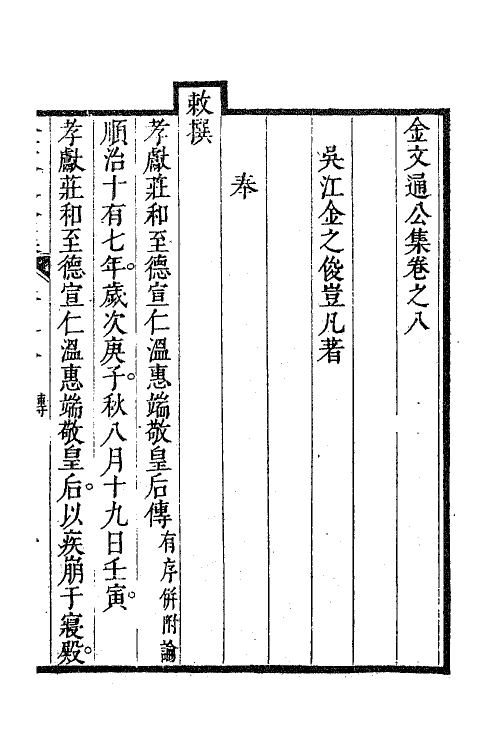 金文通公集卷之八
吳江金之俊豈凡著
奉
敕撰
孝獻莊和至德宣仁溫惠端敬皇后傳有序併附論
順治十有七年。歲次庚子。秋八月十九日壬寅。
孝獻莊和至德宣仁溫惠端敬皇后。以疾崩于寢殿。
傳